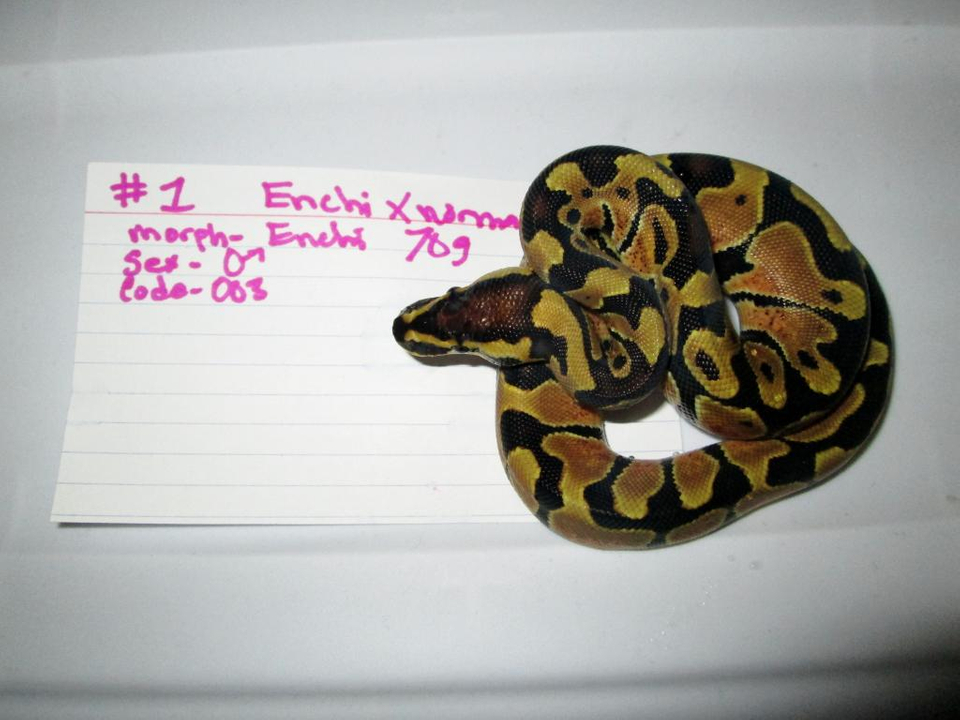 #1 Enchi X norma
morph- Enchi 78g
Sex- ♂
Code- 003